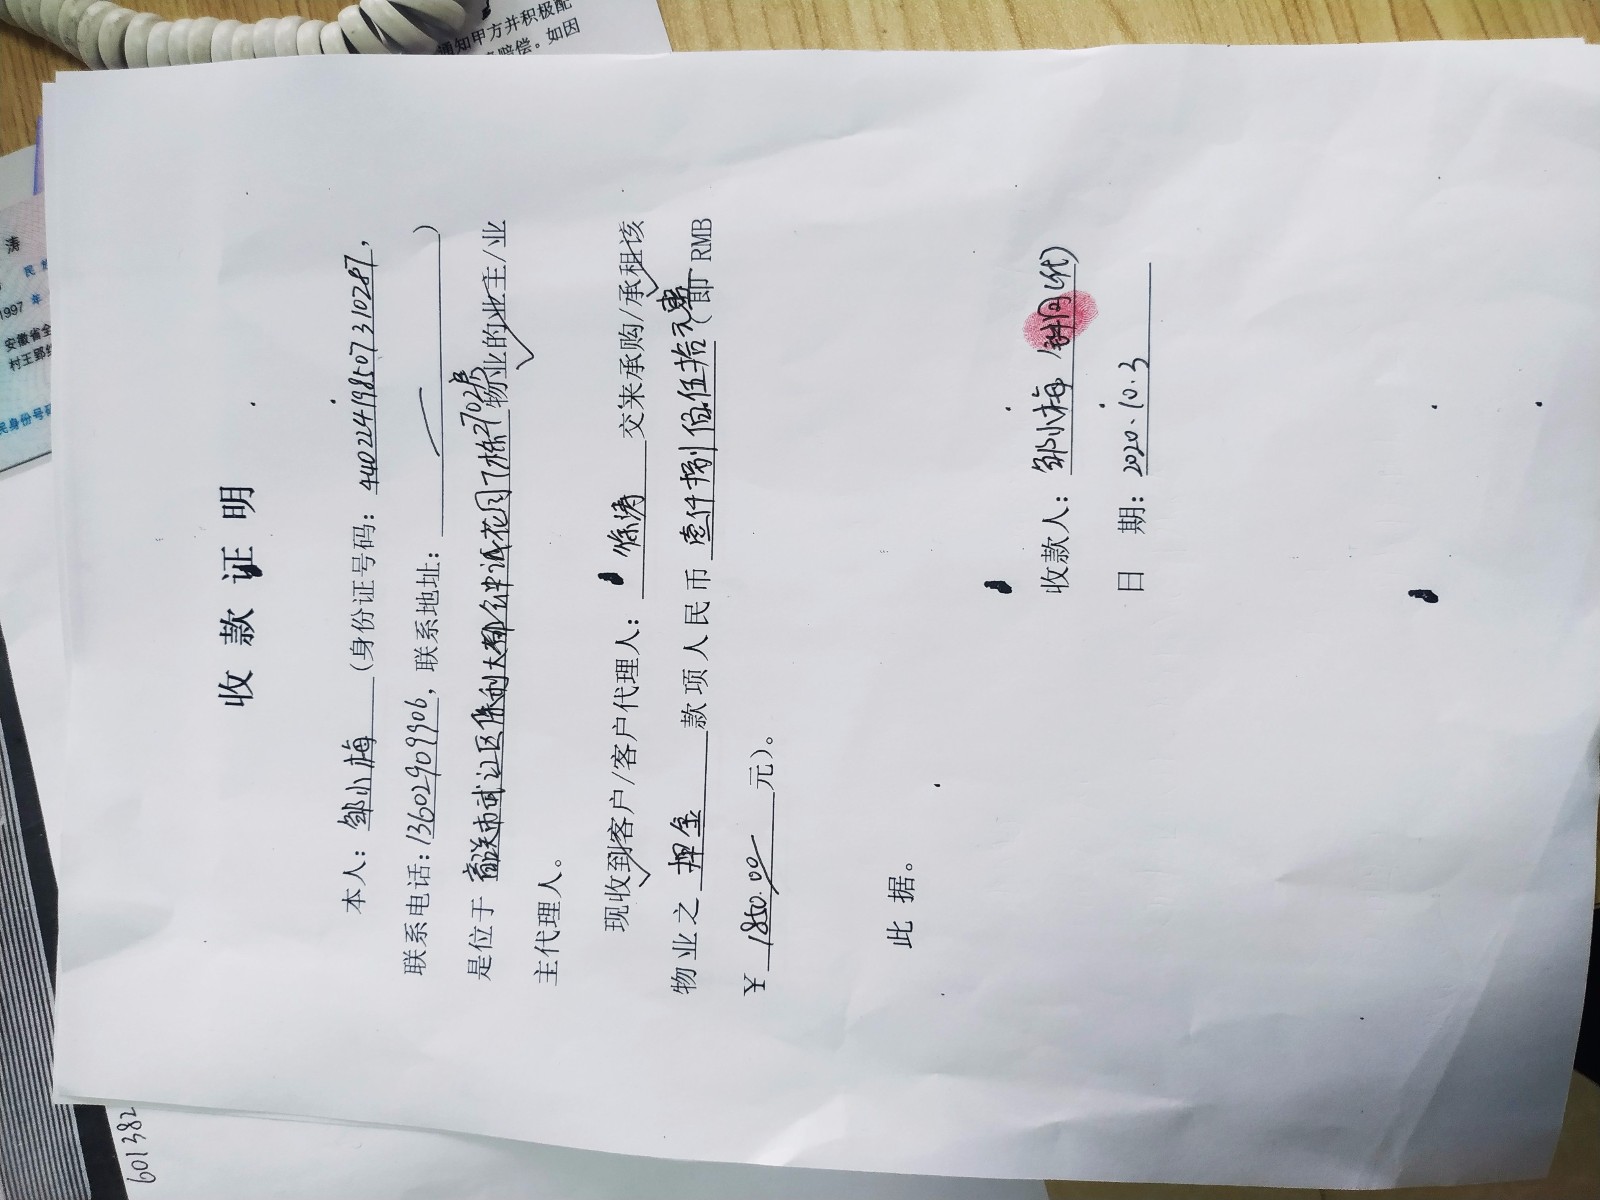 收款证明
本人：邹小梅（身份证号码：440224198507310287，
联系电话：13602909906，联系地址：）
是位于韶关市武江区保利大都会中诚花园17栋2702房物业的业主/业
主代理人。
现收到客户/客户代理人：徐涛交来承购/承租该
物业之押金款项人民币壹仟捌佰伍拾元整（即RMB
￥1850.00元）。
此据。
收款人：邹小梅（代）
日期：2020.10.3
通知甲方并积极配
赔偿。如因
涛
民
1997 年
安徽省全
村王郢
民身份号码
601382